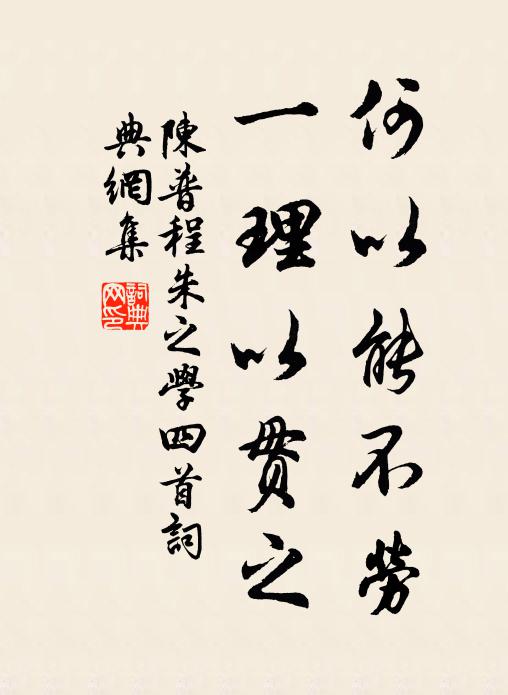 何以能不勞
一理以貫之
陳普程朱之學四首詞
典網集
詞典网印